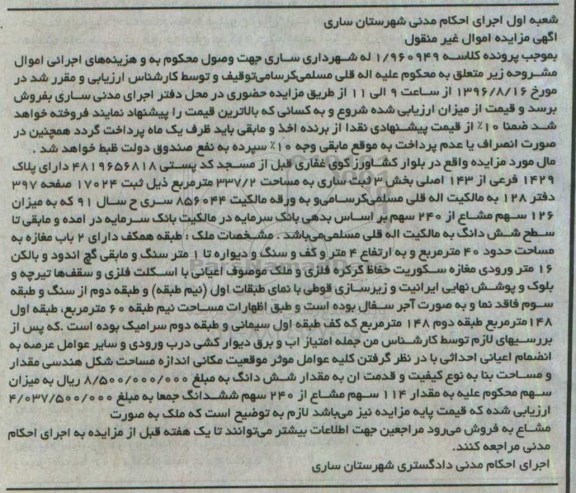 شعبه اول اجرای احکام مدنی شهرستان ساری
آگهی مزایده اموال غیر منقول
بموجب پرونده کلاسه ۱/۹۶۰۹۴۹ له شهرداری ساری جهت وصول محکوم به و هزینه‌های اجرائی اموال
مشروحه زیر متعلق به محکوم علیه اله قلی مسلمی‌کرسامی‌توقیف و توسط کارشناس ارزیابی و مقرر شد در
مورخ ۱۳۹۶/۸/۱۶ از ساعت ۹ الی ۱۱ از طریق مزایده حضوری در محل دفتر اجرای مدنی ساری بفروش
برسد و قیمت از میزان ارزیابی شده شروع و به کسانی که بالاترین قیمت را پیشنهاد نمایند فروخته خواهد
شد ضمنا ۱۰٪ از قیمت پیشنهادی نقدا از برنده اخذ و مابقی باید ظرف یک ماه پرداخت گردد همچنین در
صورت انصراف یا عدم پرداخت به موقع مابقی وجه ۱۰٪ سپرده به نفع صندوق دولت قبط خواهد شد .
مال مورد مزایده واقع در بلوار کشاورز کوی غفاری قبل از مسجد کد پستی ۴۸۱۹۶۵۶۸۱۸ دارای پلاک
۱۴۲۹ فرعی از ۱۴۳ اصلی بخش ۲ ثبت ساری به مساحت ۳۳۷/۲ مترمربع ذیل ثبت ۱۷۰۲۴ صفحه ۳۹۷
دفتر ۱۲۸ به مالکیت اله قلی مسلمی‌کرسامی‌و به ورقه مالکیت ۸۵۶۰۴۴ سری ح سال ۹۱ که به میزان
۱۲۶ سهم مشاع از ۲۴۰ سهم بر اساس بدهی بانک سرمایه در مالکیت بانک سرمایه در امده و مابقی تا
سطح شش دانگ به مالکیت اله قلی مسلمی‌می‌باشد . مشخصات ملک : طبقه همکف دارای ۲ باب مغازه به
مساحت حدود ۴۰ مترمربع و به ارتفاع ۴ متر و کف و سنگ و دیواره تا ۱ متر سنگ و مابقی گچ اندود و بالکن
۱۶ متر ورودی مغازه سکوریت حفاظ کرکره فلزی و ملک موصوف اعیانی با اسکلت فلزی و سقف‌ها تیرچه و
بلوک و پوشش نهایی ایرانیت و زیرسازی قوطی با نمای طبقات اول (نیم طبقه) و طبقه دوم از سنگ و طبقه
سوم فاقد نما و به صورت آجر سفال بوده است و طبق اظهارات مساحت نیم طبقه ۶۰ مترمربع، طبقه اول
۱۴۸مترمربع طبقه دوم ۱۴۸ مترمربع که کف طبقه اول سیمانی و طبقه دوم سرامیک بوده است .که پس از
بررسیهای لازم توسط کارشناس من جمله امتیاز اب و برق دیوار کشی درب ورودی و سایر عوامل عرصه به
انضمام اعیانی احداثی با در نظر گرفتن کلیه عوامل موثر موقعیت مکانی اندازه مساحت شکل هندسی مقدار
و مساحت بنا به نوع کیفیت و قدمت ان به مقدار شش دانگ به مبلغ ۸/۵۰۰/۰۰۰/۰۰۰ ریال به میزان
سهم محکوم علیه به مقدار ۱۱۴ سهم مشاع از ۲۴۰ سهم ششدانگ جمعا به مبلغ ۴/۰۳۷/۵۰۰/۰۰۰
ارزیابی شده که قیمت پایه مزایده نیز می‌باشد لازم به توضیح است که ملک به صورت
مشاع به فروش می‌رود مراجعین جهت اطلاعات بیشتر می‌توانند تا یک هفته قبل از مزایده به اجرای احکام
مدنی مراجعه کنند.
اجرای احکام مدنی دادگستری شهرستان ساری